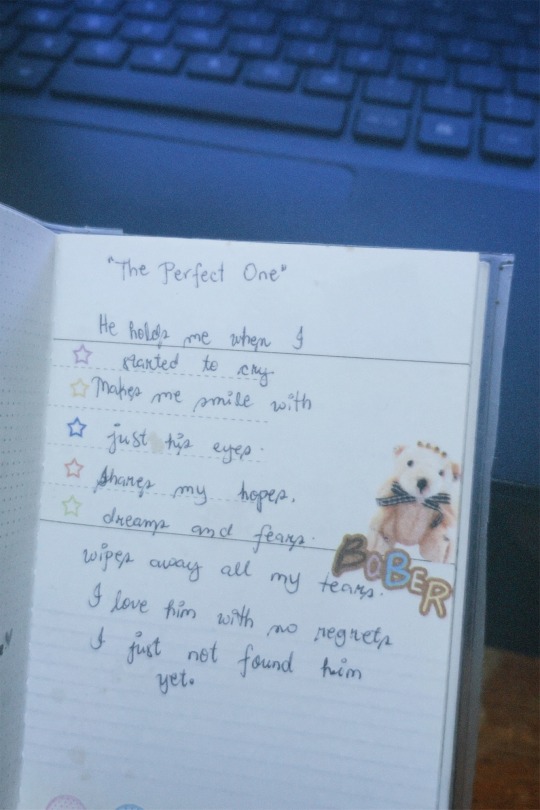 "The Perfect One"
He holds me when I
started to cry
Makes me smile with
just his eyes.
Shares my hopes,
dreams and fears.
wipes away all my tears.
I love him with no regrets
I just not found him
yet.
BOBER